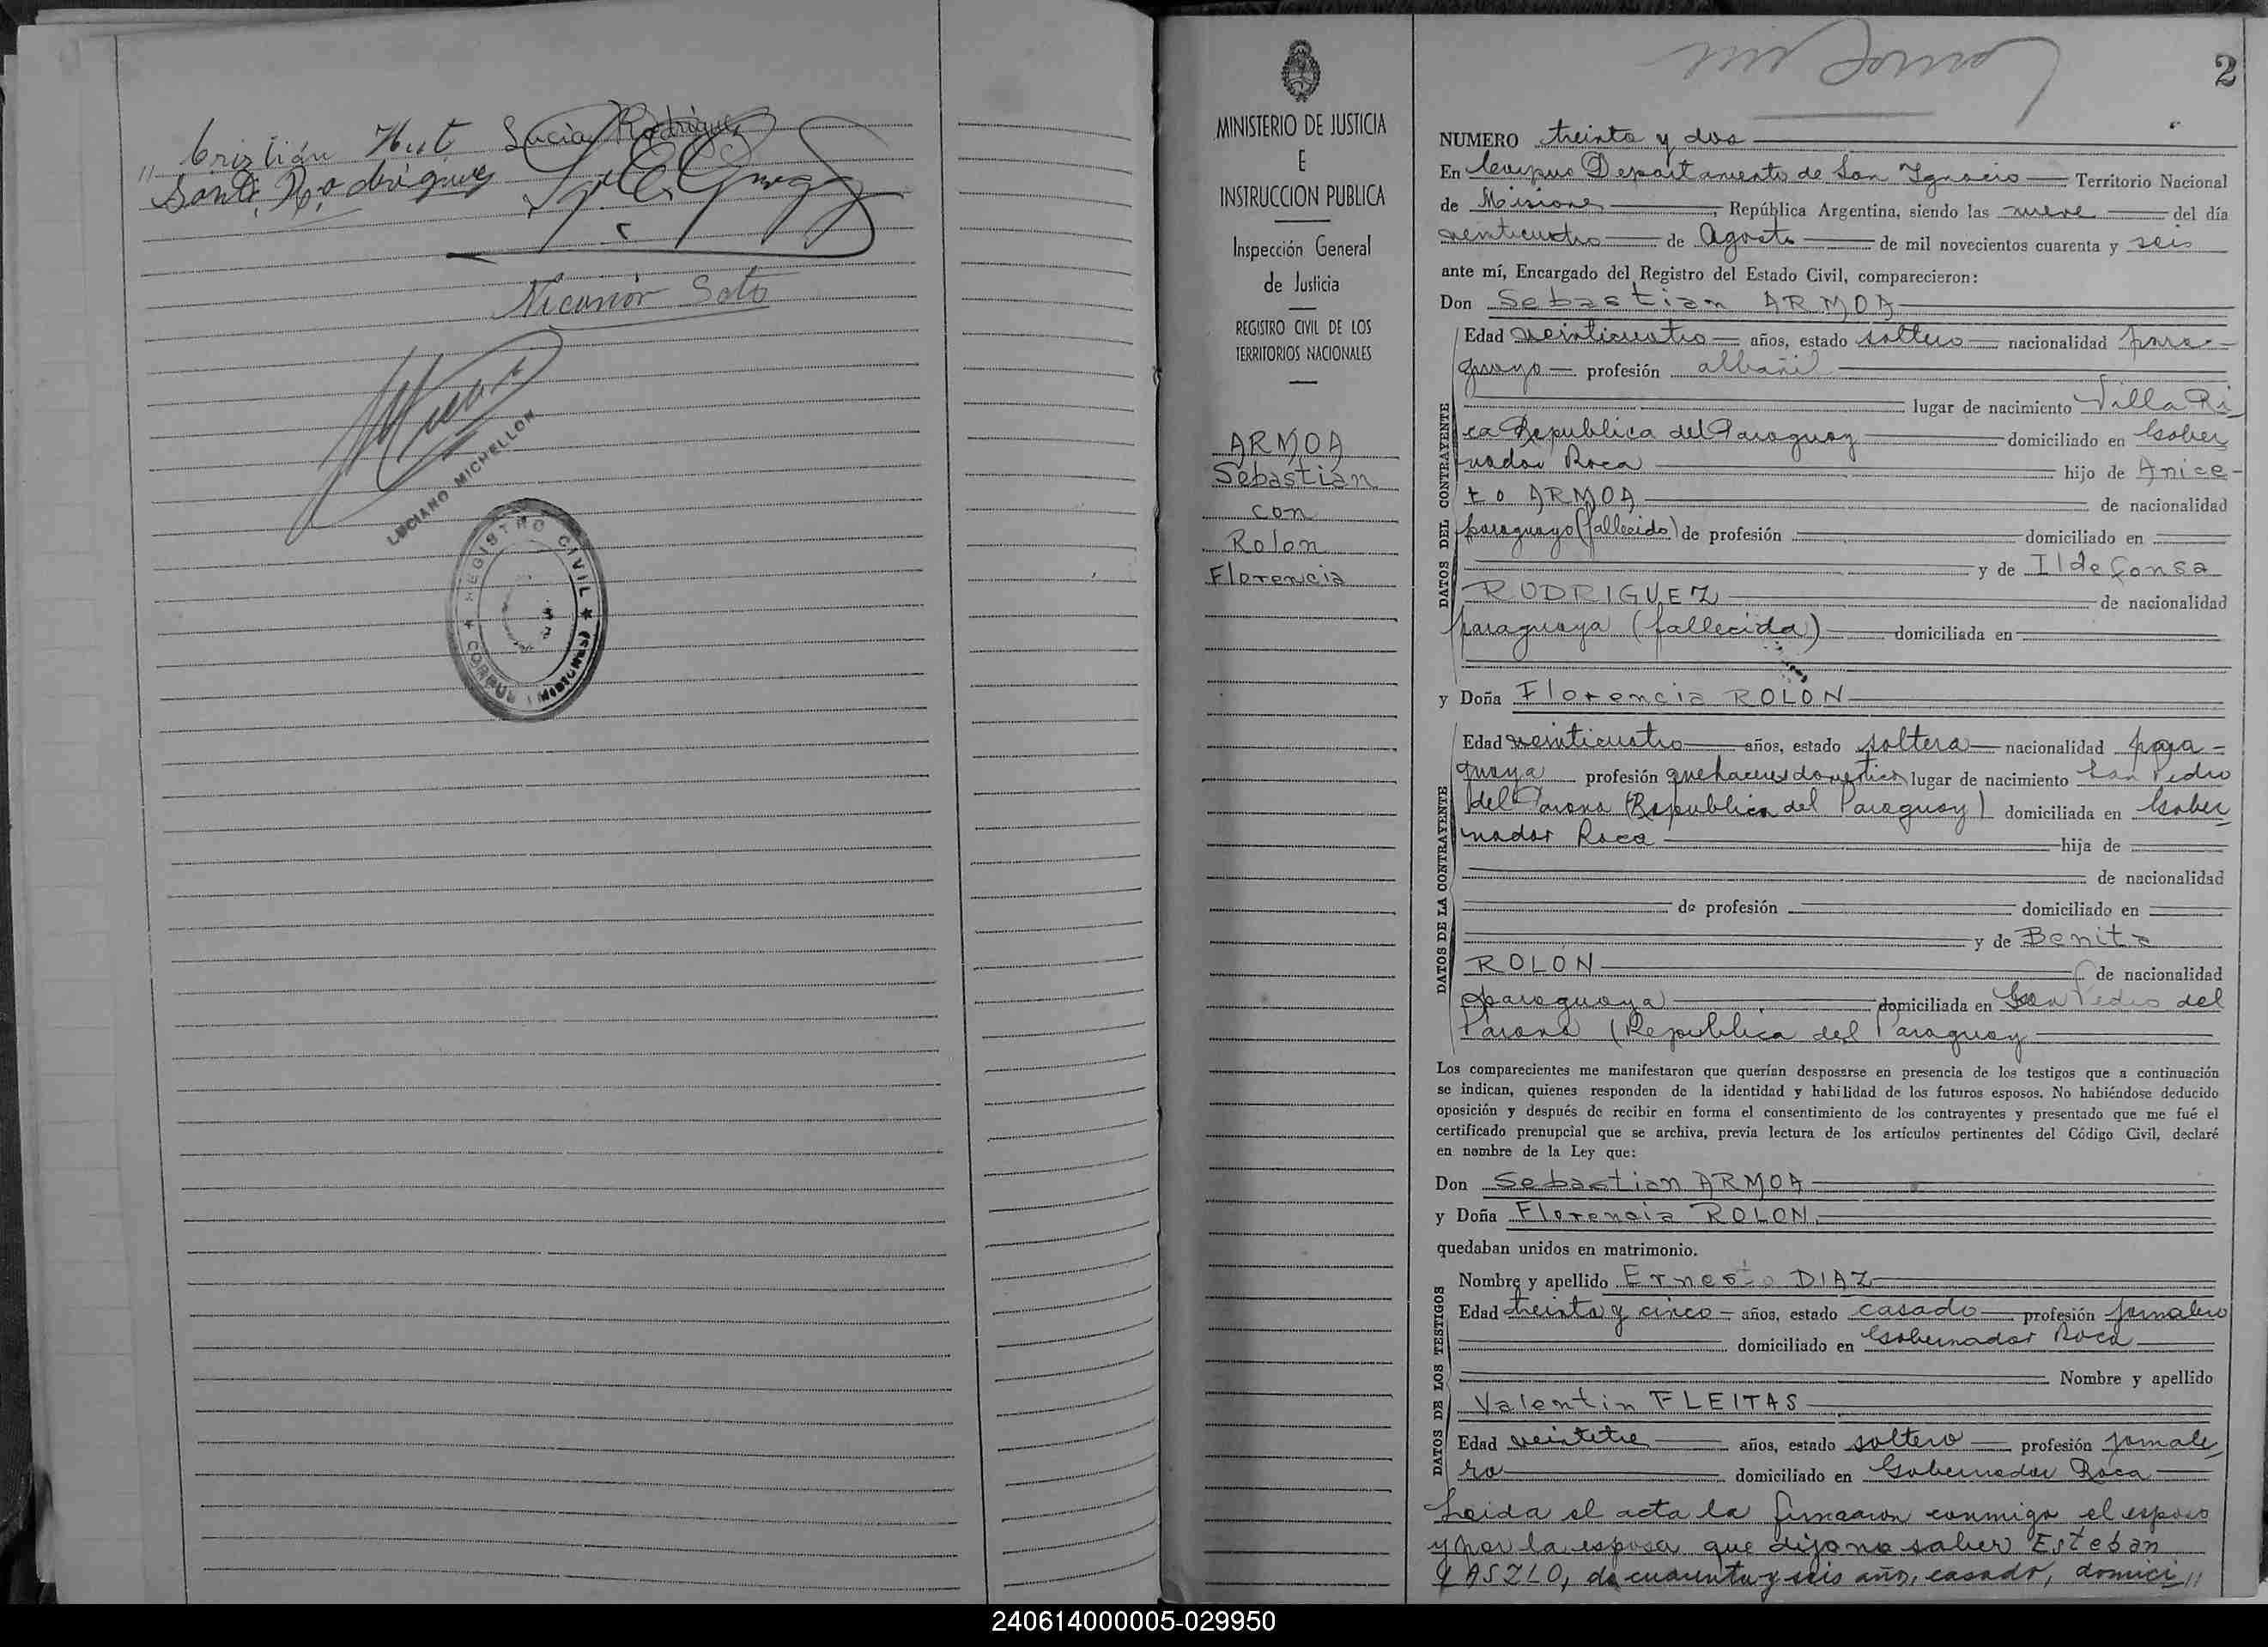 " Cristián Hut Lucia Rodriguez
Santi. Rodriguez
Nicanor Soto
LUCIANO MICHELLON
REGISTRO CIVIL
CORPUS (MISIONES)
MINISTERIO DE JUSTICIA
E
INSTRUCCION PUBLICA
Inspección General
de Justicia
REGISTRO CIVIL DE LOS
TERRITORIOS NACIONALES
ARMOA
Sebastian
con
Rolon
Florencia
2
NUMERO treinta y dos
En Corpus Departamento de San Ignacio Territorio Nacional
de Misiones, República Argentina, siendo las nueve del día
veinticuatro de Agosto de mil novecientos cuarenta y seis
ante mí, Encargado del Registro del Estado Civil, comparecieron:
Don Sebastian ARMOA
DATOS DEL CONTRAYENTE
Edad veinticuatro años, estado soltero nacionalidad para-
guayo profesión albañil
lugar de nacimiento Villa Ri
ca Republica del Paraguay domiciliado en Gober
nador Roca hijo de Anice-
to ARMOA de nacionalidad
paraguayo (fallecido) de profesión domiciliado en
y de Ildefonsa
RODRIGUEZ de nacionalidad
paraguaya (fallecida) domiciliada en
y Doña Florencia ROLON
DATOS DE LA CONTRAYENTE
Edad veinticuatro años, estado soltera nacionalidad para-
guaya profesión quehaceres domestico lugar de nacimiento San Pedro
del Parana (Republica del Paraguay) domiciliada en Gober
nador Roca hija de
de nacionalidad
de profesión domiciliado en
y de Benita
ROLON de nacionalidad
paraguaya domiciliada en San Pedro del
Parana (Republica del Paraguay
Los comparecientes me manifestaron que querían desposarse en presencia de los testigos que a continuación
se indican, quienes responden de la identidad y habilidad de los futuros esposos. No habiéndose deducido
oposición y después de recibir en forma el consentimiento de los contrayentes y presentado que me fué el
certificado prenupcial que se archiva, previa lectura de los artículos pertinentes del Código Civil, declaré
en nombre de la Ley que:
Don Sebastian ARMOA
y Doña Florencia ROLON
quedaban unidos en matrimonio.
DATOS DE LOS TESTIGOS
Nombre y apellido Ernesto DIAZ
Edad treinta y cinco años, estado casado profesión jornalero
domiciliado en Gobernador Roca
Nombre y apellido
Valentin FLEITAS
Edad veintitre años, estado soltero profesión jornale
ro domiciliado en Gobernador Roca
Leida el acta la firmaron conmigo el esposo
y por la esposa que dijo no saber Esteban
LASZLO, de cuarenta y seis año, casado, domici"
240614000005-029950